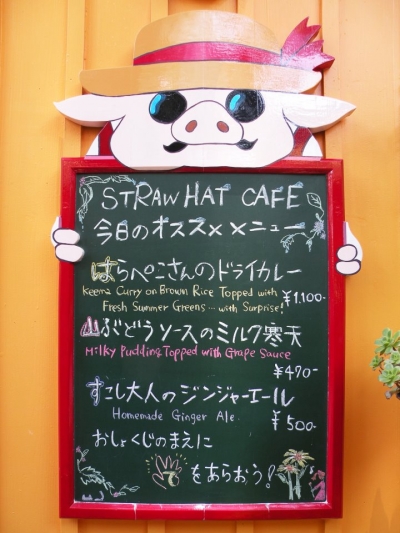 STRAW HAT CAFE
今日のオススメメニュー
はらぺこさんのドライカレー
Keema Curry on Brown Rice Topped with
Fresh Summer Greens... with Surprise! ¥1,100-
山ぶどうソースのミルク寒天
Milky Pudding Topped with Grape Sauce
¥470-
すこし大人のジンジャーエール
Homemade Ginger Ale. ¥500-
おしょくじのまえに
をあらおう!